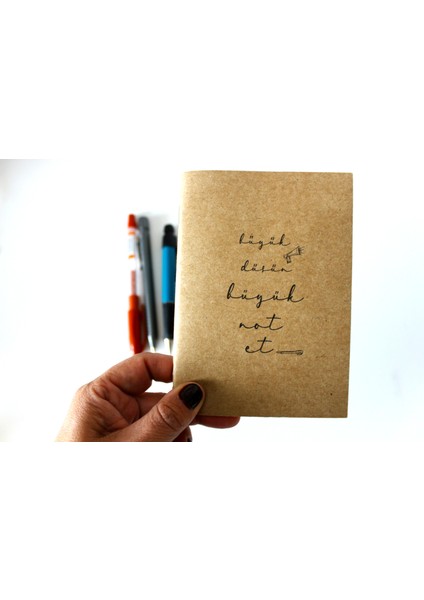 büyük
düşün
büyük
not
et